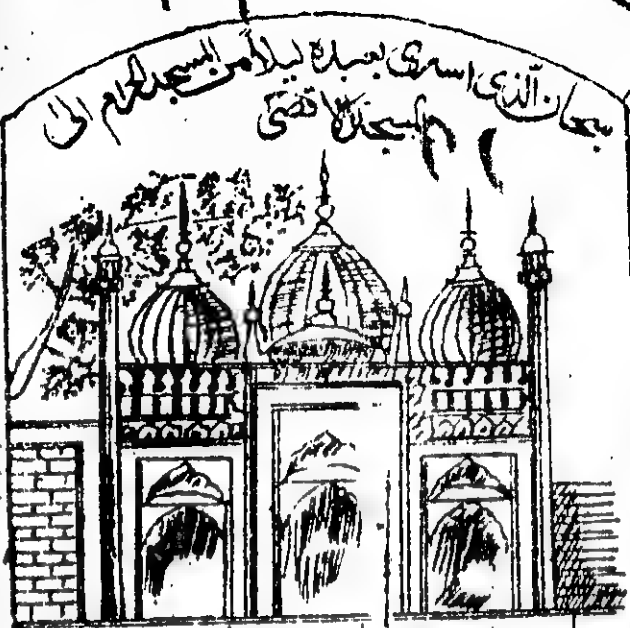 سبحان الذی اسری بعبدہ لیلا من المسجد الحرام الی
المسجد الاقصی